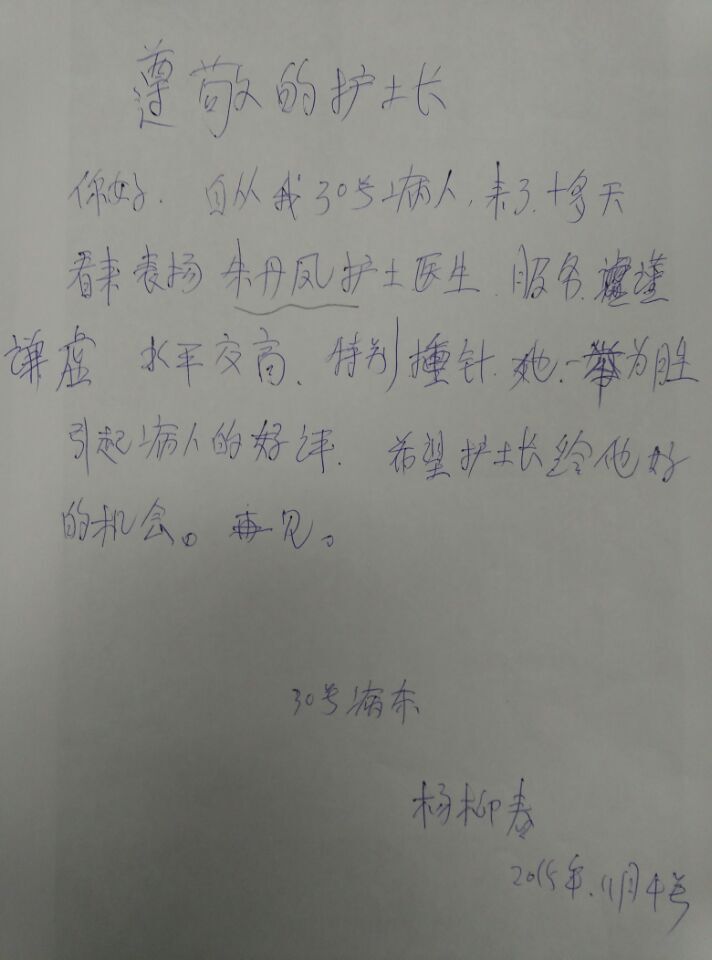 尊敬的护士长
你好. 自从我30号病人,来了.十多天
看来表扬 朱丹凤护士医生 服务 谨
谦虚 水平交高、特别 针. 她.一 为胜
引起病人的好评. 希望护士长给他好
的机会。再见。
30号病东
杨柳春
2015年.11月4号